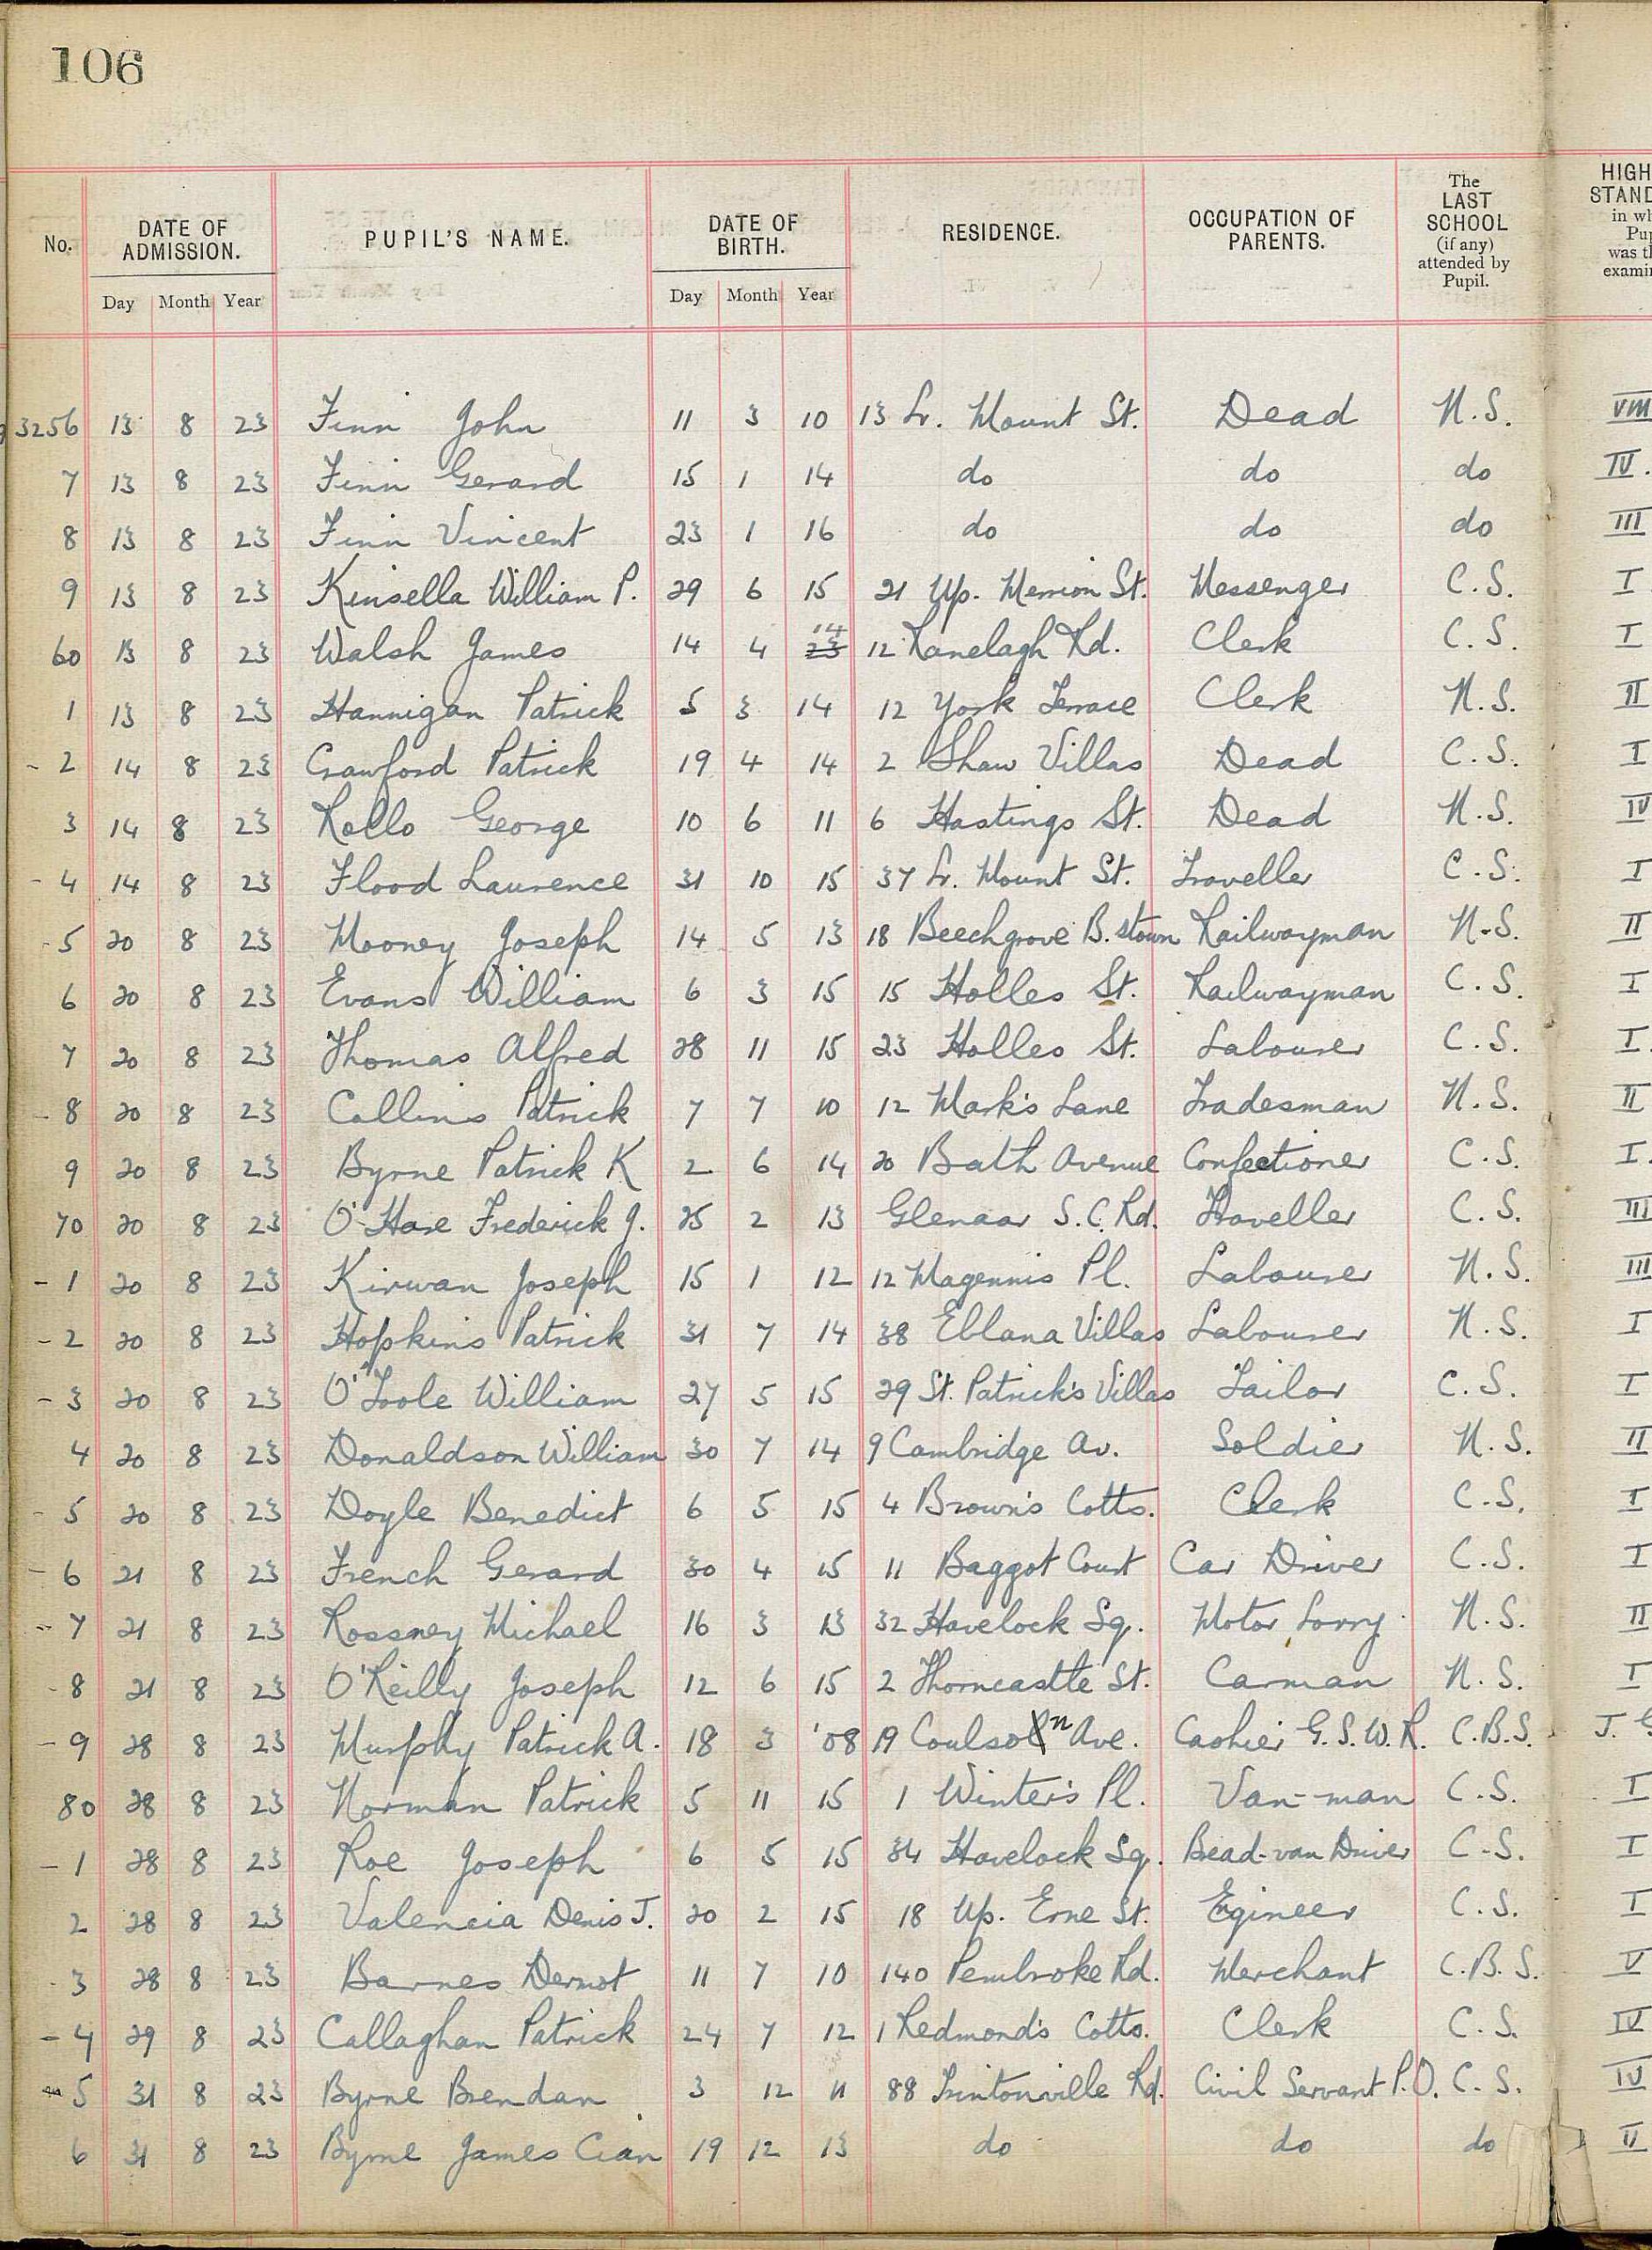 106
No. DATE OF ADMISSION. PUPIL'S NAME. DATE OF BIRTH. RESIDENCE. OCCUPATION OF PARENTS. The LAST SCHOOL (if any) attended by Pupil. HIGH STAND in wh Pup was th exami
Day Month Year Day Month Year
3256 13 8 23 Finn John 11 3 10 13 Lr. Mount St. Dead N.S. VIII
7 13 8 23 Finn Gerard 15 1 14 do do do IV.
8 13 8 23 Finn Vincent 23 1 16 do do do III
9 13 8 23 Kinsella William P. 29 6 15 21 Up. Merrion St. Messenger C.S. I
60 13 8 23 Walsh James 14 4 23 14 12 Ranelagh Rd. Clerk C.S. I
1 13 8 23 Hannigan Patrick 5 3 14 12 York Terrace Clerk N.S. II
- 2 14 8 23 Crawford Patrick 19 4 14 2 Shaw Villas Dead C.S. I
3 14 8 23 Rollo George 10 6 11 6 Hastings St. Dead N.S. IV
- 4 14 8 23 Flood Laurence 31 10 15 37 Lr. Mount St. Traveller C.S. I
- 5 20 8 23 Mooney Joseph 14 5 13 18 Beechgrove B.stown Railwayman N.S. II
6 20 8 23 Evans William 6 3 15 15 Holles St. Railwayman C.S. I
7 20 8 23 Thomas Alfred 28 11 15 23 Holles St. Labourer C.S. I.
- 8 20 8 23 Collins Patrick 7 7 10 12 Mark's Lane Tradesman N.S. II
9 20 8 23 Byrne Patrick K 2 6 14 20 Bath Avenue Confectioner C.S. I.
70 20 8 23 O'Hare Frederick J. 25 2 13 Glenaar S.C.Rd. Traveller C.S. III
- 1 20 8 23 Kirwan Joseph 15 1 12 12 Magennis Pl. Labourer N.S. III
- 2 20 8 23 Hopkins Patrick 31 7 14 38 Eblana Villas Labourer N.S. I
- 3 20 8 23 O'Toole William 27 5 15 29 St. Patrick's Villas Tailor C.S. I
4 20 8 23 Donaldson William 30 7 14 9 Cambridge Av. Soldier N.S. II
- 5 20 8 23 Doyle Benedict 6 5 15 4 Brown's Cotts. Clerk C.S. I
- 6 21 8 23 French Gerard 30 4 15 11 Baggot Court Car Driver C.S. I
- 7 21 8 23 Rossney Michael 16 3 13 32 Havelock Sq. Motor Lorry N.S. II
- 8 21 8 23 O'Reilly Joseph 12 6 15 2 Thorncastle St. Carman N.S. I
- 9 28 8 23 Murphy Patrick A. 18 3 '08 19 Coulson Ave. Cashier G.S.W.R. C.B.S. J. G
80 28 8 23 Norman Patrick 5 11 15 1 Winter's Pl. Van-man C.S. I
- 1 28 8 23 Roe Joseph 6 5 15 34 Havelock Sq. Bead-van Driver C.S. I
2 28 8 23 Valencia Denis J. 20 2 15 18 Up. Erne St. Egineer C.S. I
3 28 8 23 Barnes Dermot 11 7 10 140 Pembroke Rd. Merchant C.B.S. V
- 4 29 8 23 Callaghan Patrick 24 7 12 1 Redmond's Cotts. Clerk C.S. IV
5 31 8 23 Byrne Brendan 3 12 11 88 Tritonville Rd. Civil Servant P.O. C.S. IV
6 31 8 23 Byrne James Cian 19 12 13 do do do II